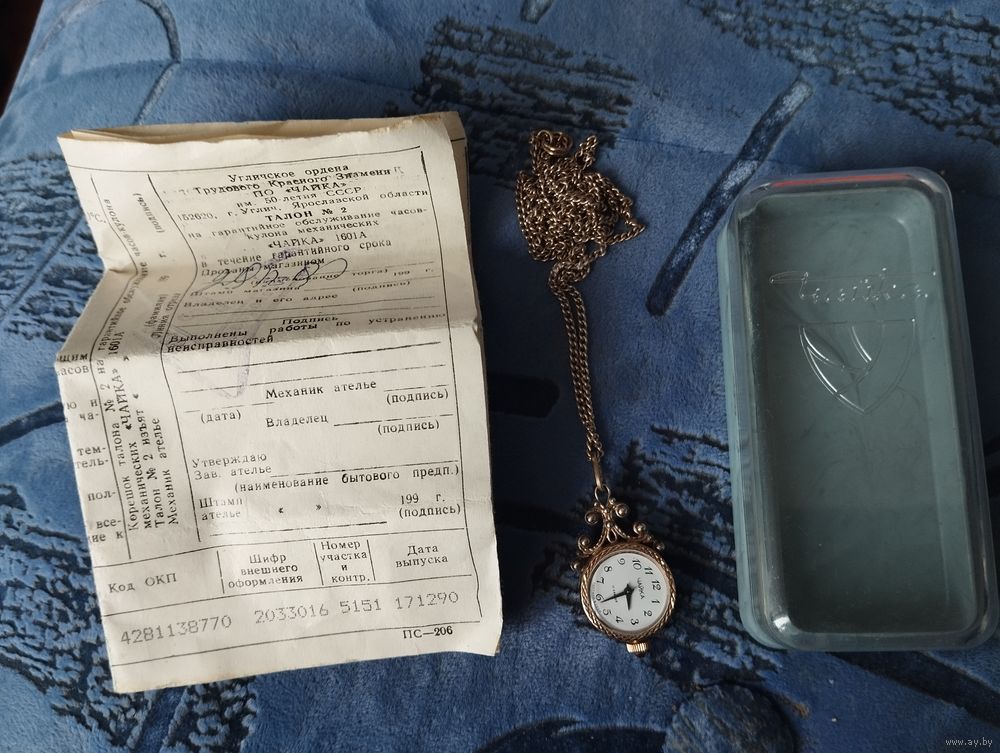 Угличское ордена
Трудового Красного Знамени
ПО «ЧАЙКА»
им. 50-летия СССР
152620, г. Углич, Ярославской области
ТАЛОН № 2
на гарантийное обслуживание часов-
кулона механических
«ЧАЙКА» 1601А
в течение гарантийного срока
Продана магазином
торга) 199 г.
Штамп магазина (подпись)
Владелец и его адрес
Подпись
Выполнены работы по устранению
неисправностей
Механик ателье
(дата) (подпись)
Владелец
(подпись)
Утверждаю
Зав. ателье
(наименование бытового предп.)
Штамп
ателье « » 199 г.
(подпись)
Код ОКП
Шифр
внешнего
оформления
Номер
участка
и
контр.
Дата
выпуска
4281138770 2033016 5151 171290
ПС—206
Корешок талона № 2 на гарантийное
механических «ЧАЙКА» 1601А
Талон № 2 изъят «
Механик ателье
(фамилия)
(подпись)
г.
ЧАЙКА
12
1
2
3
4
5
6
7
8
9
10
11
Чайка
www.ay.by